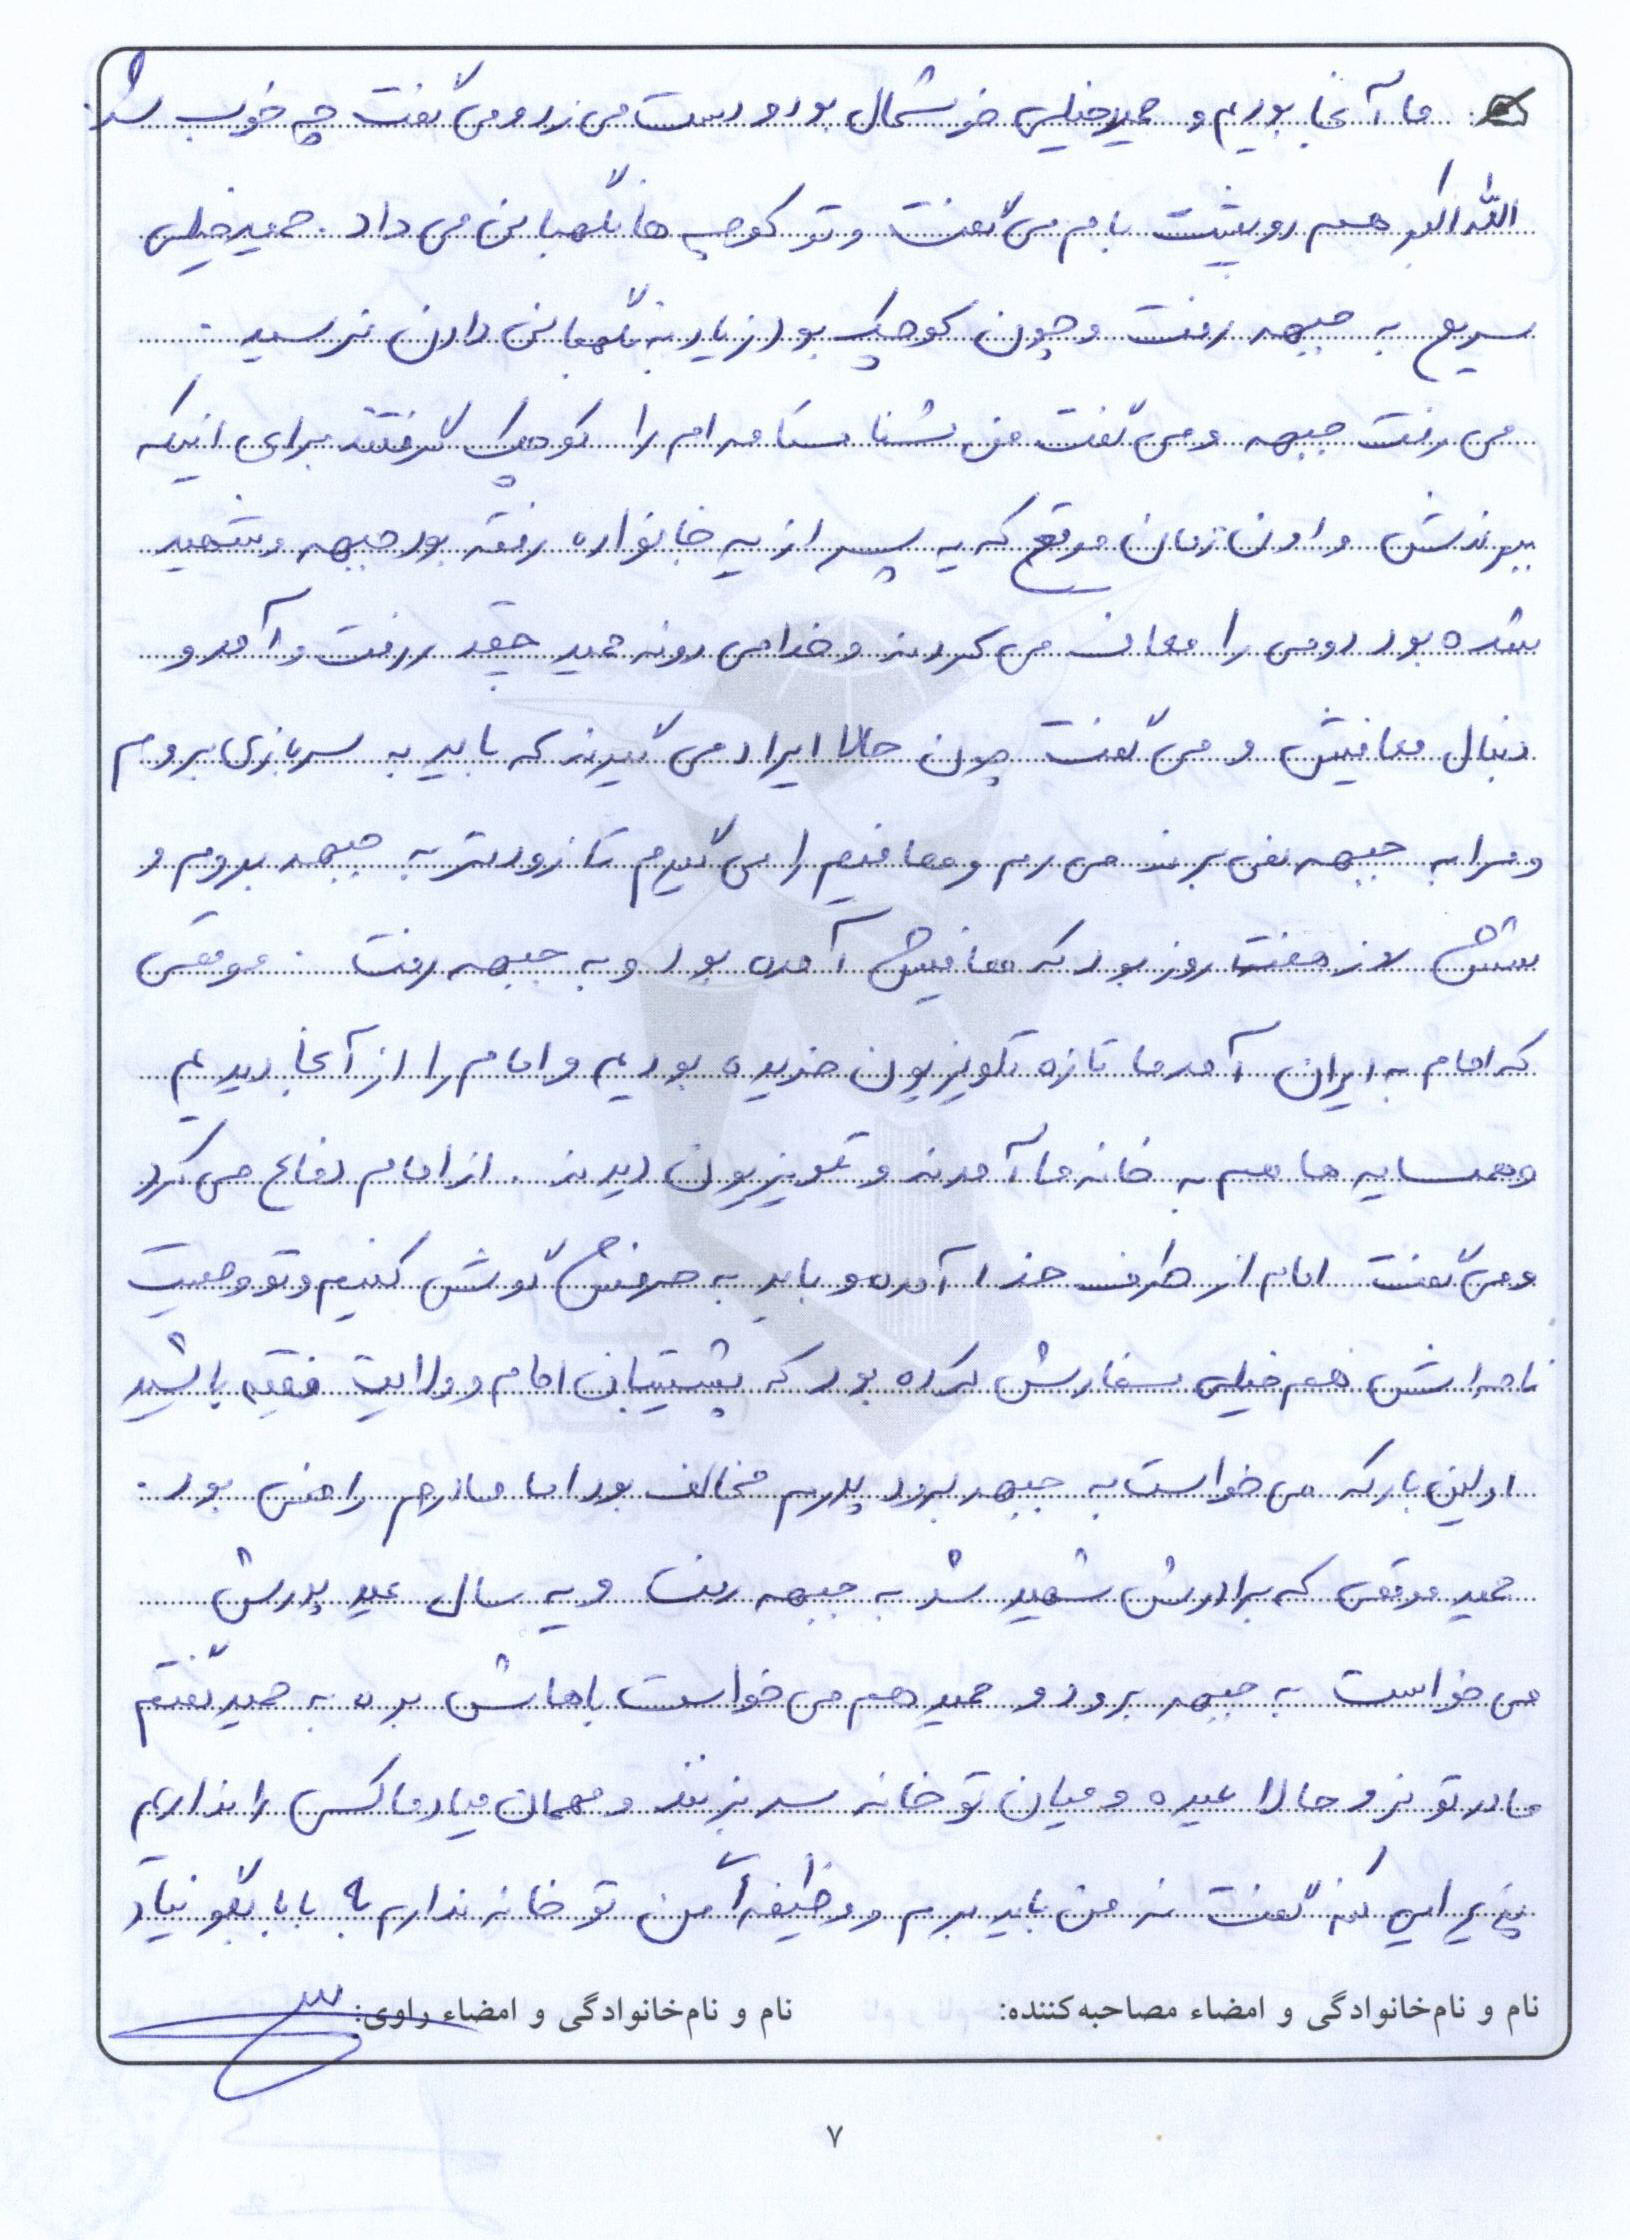 ما آنجا بودیم و حمید خیلی خوشحال بود و دست می زد و می گفت چه خوب شد.
الله اکبر هم رو پشت بام می گفت و تو کوچه ها نگهبانی می داد. حمید خیلی
سریع به جبهه رفت و چون کوچک بود زیاد به نگهبانی دادن نرسید.
می رفت جبهه و می گفت من شناسنامه ام را کوچک گرفتند برای اینکه
ببرندش و اون زمان موقع که یه پسر از یه خانواده رفته بود جبهه و شهید
شده بود دومی را معاف می کردند و خدا می دونه حمید چقدر رفت و آمد و
دنبال معافیش و می گفت چون حالا ایراد می گیرند که باید به سربازی بروم
و مرا به جبهه نمی برند می رم و معافیم را می گیرم تا زودتر به جبهه بروم و
شش روز هفت روز بود که معافیش آمده بود و به جبهه رفت. موقعی
که امام به ایران آمد ما تازه تلویزیون خریده بودیم و امام را از آنجا دیدیم
و همسایه ها هم به خانه ما آمدند و تلویزیون دیدند. از امام دفاع می کرد
و می گفت امام از طرف خدا آمده و باید به حرفش گوش کنیم و تو وصیت
نامه اش هم خیلی سفارش کرده بود که پشتیبان امام و ولایت فقیه باشید
اولین بار که می خواست به جبهه برود پدرم مخالف بود اما مادرم راضی بود.
حمید موقعی که برادرش شهید شد به جبهه رفت و یه سال عید پدرش
می خواست به جبهه برود و حمید هم می خواست باهاش بره به حمید گفتم
مادر تو نرو حالا عیده و میان تو خانه سر بزنند و مهمان میاد ما کسی را نداریم
پذیرایی کنه گفت نه من باید برم و وظیفه آمن تو خانه ندارم به بابا بگو نیاد
نام و نام‌خانوادگی و امضاء مصاحبه‌کننده:
نام و نام‌خانوادگی و امضاء راوی:
۷